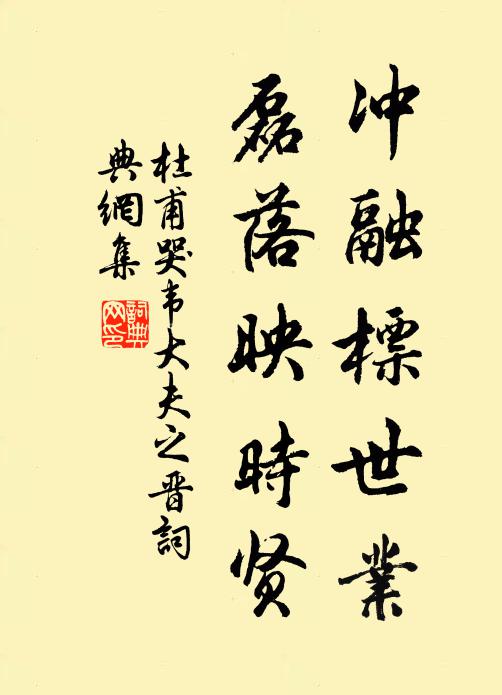 冲融標世業
磊落映時贤
杜甫哭韦大夫之晋詞
典網集
詞典网印